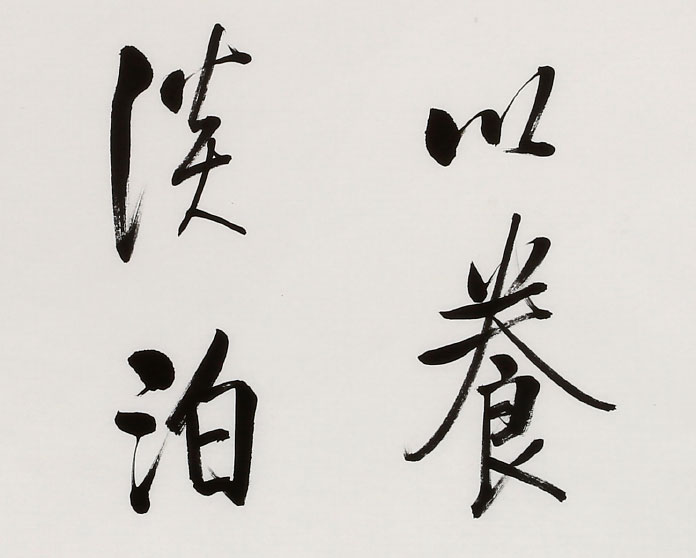 以養
淡泊